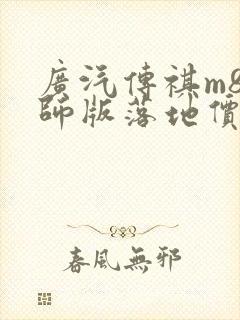 廣汽傳祺m8
師版落地價
春風無邪